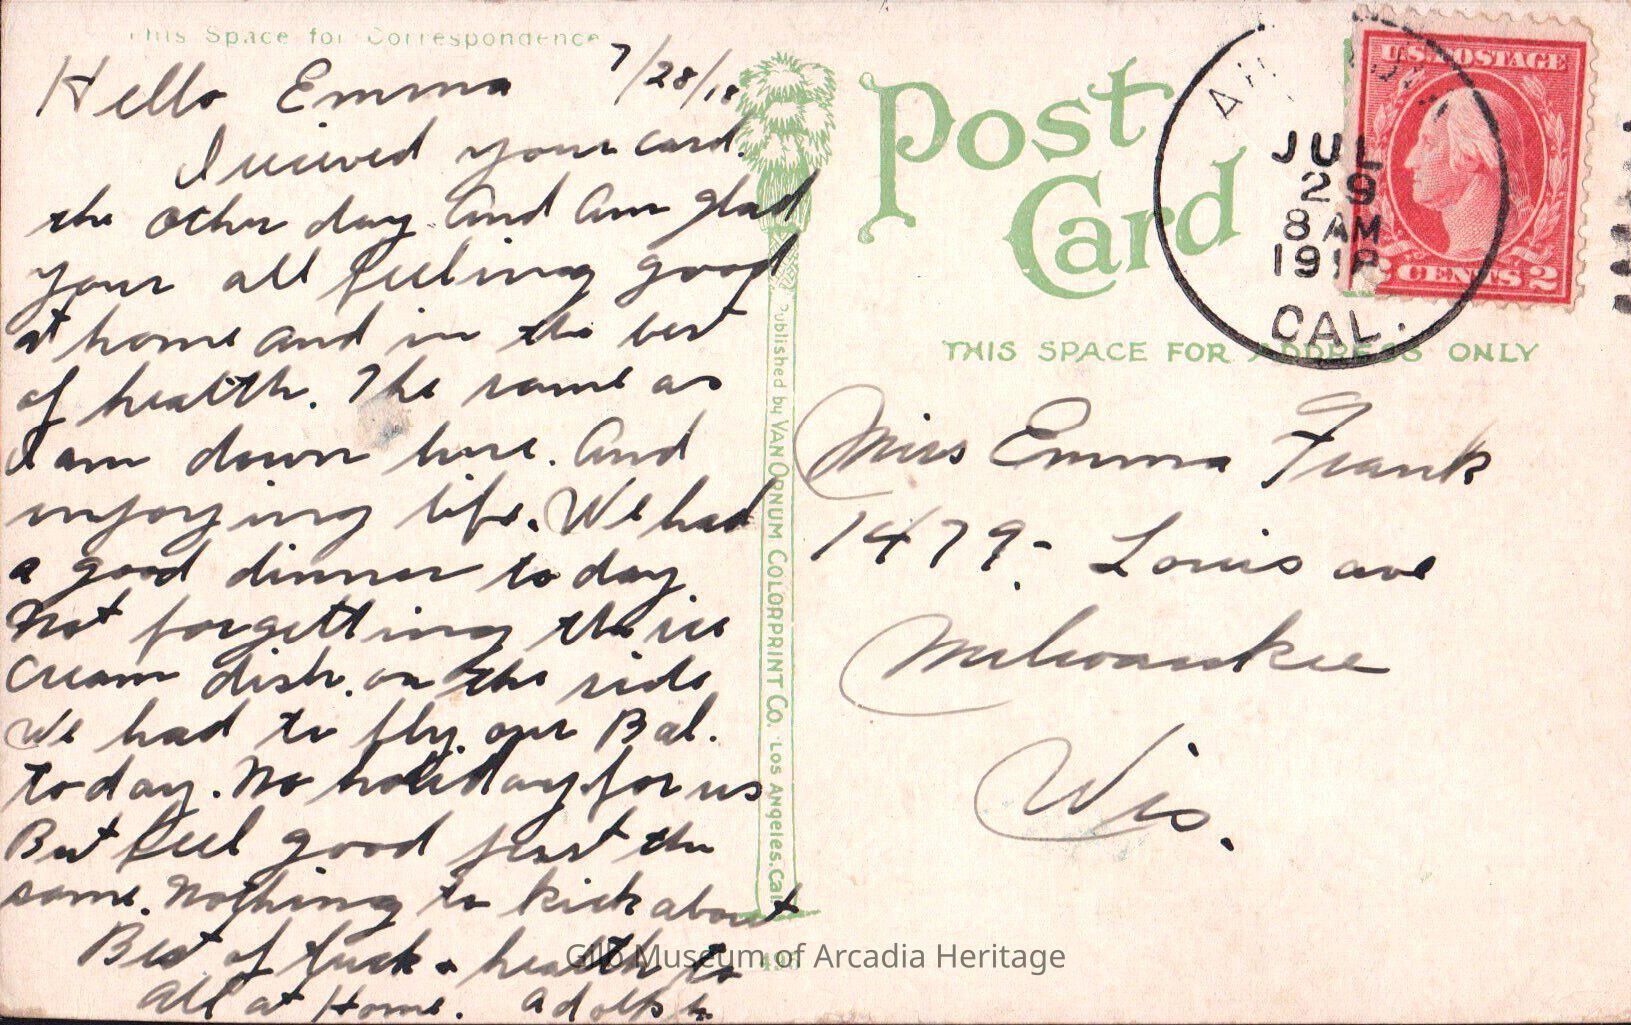 This Space for Correspondence
Hello Emma 7/28/18
I recieved your card.
the other day and am glad
your all feeling good
at home and in the best
of health. The same as
I am down here. And
enjoying life. We had
a good dinner to day
Not forgetting the ice
cream dish. on the side
We had to fly our Bal.
today. No holiday for us
But feel good just the
same. Nothing to kick about
Best of luck & health to
All at Home. Adolph
Published by VAN ORNUM COLORPRINT CO. LOS ANGELES, Cal.
Post
Card
JUL
29
8 AM
1918
CAL.
U.S. POSTAGE
CENTS 2
THIS SPACE FOR ADDRESS ONLY
Miss Emma Frank
1479- Louis ave
Milwaukee
Wis.
Gilb Museum of Arcadia Heritage